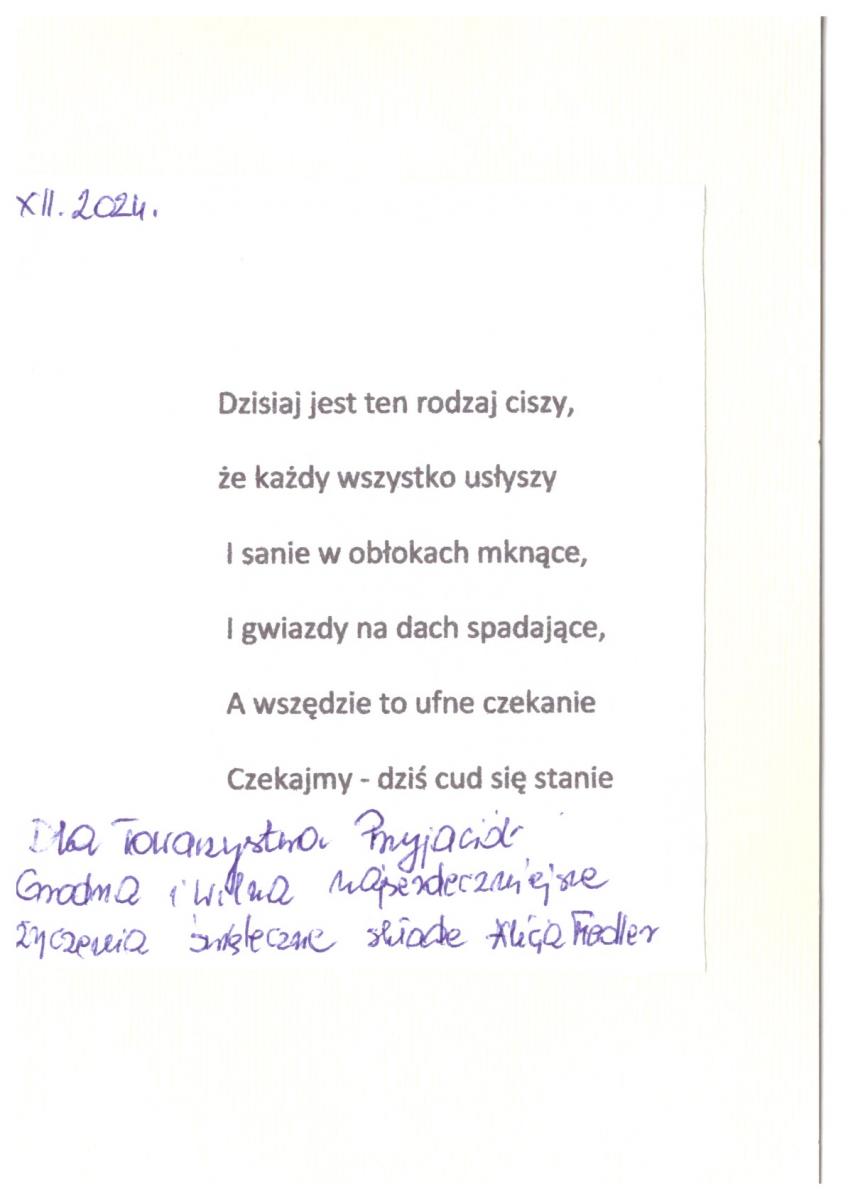 XII.2024.
Dzisiaj jest ten rodzaj ciszy,
że każdy wszystko usłyszy
I sanie w obłokach mknące,
I gwiazdy na dach spadające,
A wszędzie to ufne czekanie
Czekajmy - dziś cud się stanie
Dla Towarzystwa Przyjaciół
Grodna i Wilna najserdeczniejsze
życzenia świąteczne składa Alicja Fiedler